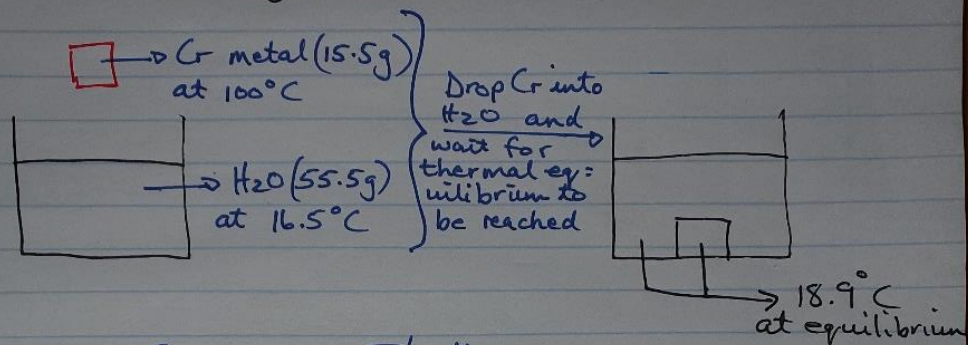 Cr metal (15.5g)
at 100°C
H2O (55.5g)
at 16.5°C
Drop Cr into
H2O and
wait for
thermal eq=
uilibrium to
be reached
18.9°C
at equilibrium